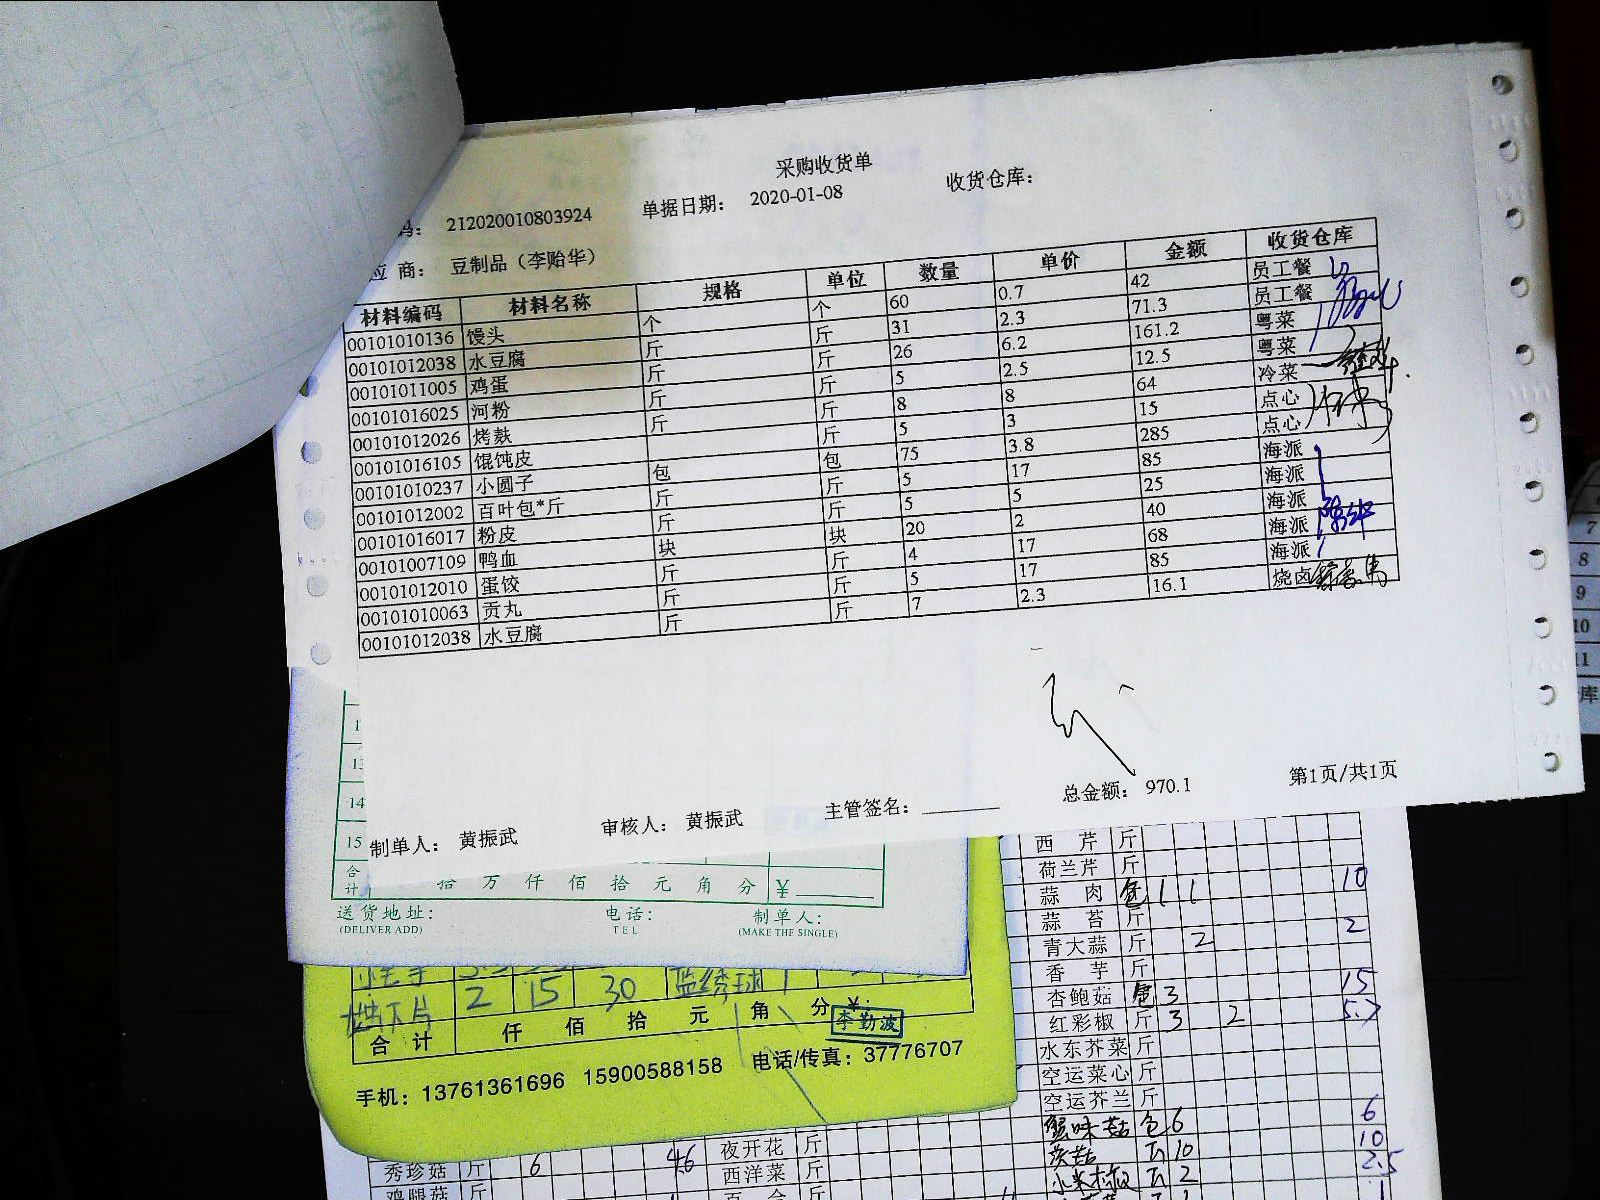 采购收货单
码： 212020010803924 单据日期： 2020-01-08 收货仓库：
应 商： 豆制品（李贻华）
材料编码 材料名称 规格 单位 数量 单价 金额 收货仓库
00101010136 馒头 个 个 60 0.7 42 员工餐
00101012038 水豆腐 斤 斤 31 2.3 71.3 员工餐
00101011005 鸡蛋 斤 斤 26 6.2 161.2 粤菜
00101016025 河粉 斤 斤 5 2.5 12.5 粤菜
00101012026 烤麸 斤 斤 8 8 64 冷菜
00101016105 馄饨皮 斤 5 3 15 点心
00101010237 小圆子 包 包 75 3.8 285 点心
00101012002 百叶包*斤 斤 斤 5 17 85 海派
00101016017 粉皮 斤 斤 5 5 25 海派
00101007109 鸭血 块 块 20 2 40 海派
00101012010 蛋饺 斤 斤 4 17 68 海派
00101010063 贡丸 斤 斤 5 17 85 海派
00101012038 水豆腐 斤 斤 7 2.3 16.1 烧卤
总金额： 970.1 第1页/共1页
制单人： 黄振武 审核人： 黄振武 主管签名：
14
15
合计 拾 万 仟 佰 拾 元 角 分 ¥
送货地址： 电话： 制单人：
(DELIVER ADD) TEL (MAKE THE SINGLE)
2 15 30
合 计 仟 佰 拾 元 角 分 ¥：
李勤波
手机：13761361696 15900588158 电话/传真：37776707
西 芹 斤
荷兰芹 斤
蒜 肉 包 1 1 10
蒜 苔 斤
青大蒜 斤 2 2
香 芋 斤
杏鲍菇 3 15
红彩椒 斤 3 2 5.7
水东芥菜 斤
空运菜心 斤
空运芥兰 斤
蟹味菇 包 6 6
10 10
小米椒 2 2.5
秀珍菇 斤 6 46 夜开花 斤
鸡腿菇 斤 西洋菜 斤
7
8
9
10
11
库